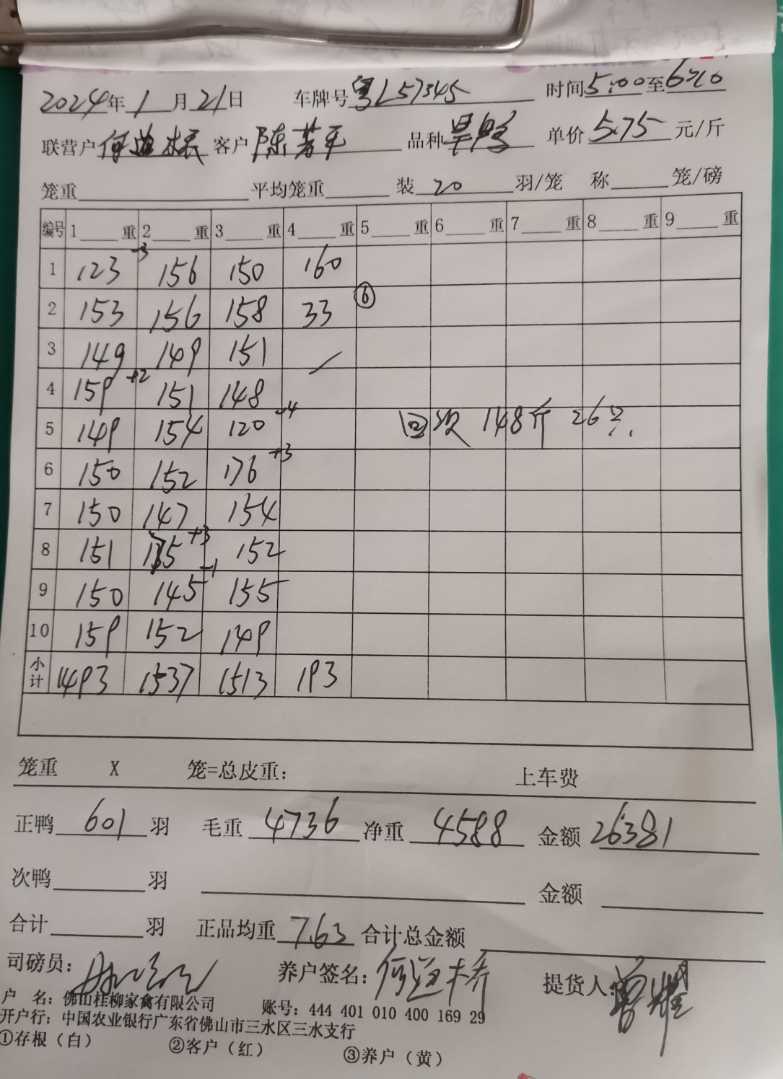 2024年1月21日 车牌号粤L57345 时间5:00至6:20
联营户 何道 客户 陈芳平 品种 旱鸭 单价5.75元/斤
笼重 平均笼重 装 20 羽/笼 称 笼/磅
编号 1 重 2 重 3 重 4 重 5 重 6 重 7 重 8 重 9 重
1 123 -3 156 150 160
2 153 156 158 33 ⑥
3 149 149 151 /
4 159 +2 151 148
5 149 154 120 -4 回次 148斤 26只
6 150 152 176 +3
7 150 147 154
8 151 155 +3 152
9 150 145 -1 155
10 159 152 149
小计 1493 1537 1513 193
笼重 X 笼=总皮重: 上车费
正鸭 601 羽 毛重 4736 净重 4588 金额 26381
次鸭 羽 金额
合计 羽 正品均重 7.63 合计总金额
司磅员: 养户签名: 何道 提货人:
户 名: 佛山桂柳家禽有限公司 账号: 444 401 010 400 169 29
开户行: 中国农业银行广东省佛山市三水区三水支行
①存根(白) ②客户(红) ③养户(黄)